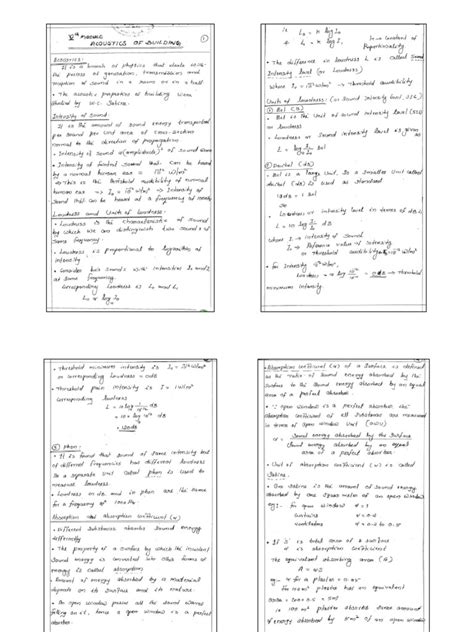 Vth MODULE
ACOUSTICS OF BUILDING
1
Acoustics:
It is a branch of physics that deals with
the process of generation, transmission and
reception of sound in a room or in a hall.
• The acoustic properties of building were
studied by W.C. Sabine.
Intensity of Sound:
It is the amount of sound energy transmitted
per second per unit area of cross-section
normal to the direction of propagation
• Intensity of sound α (amplitude)² of sound wave
• Intensity of sound that can be heard
by a normal human ear = W/m²
⇒ This is the threshold audibility of normal
human ear ⇒ I₀ = W/m² ⇒ Intensity of
sound that can be heard at a frequency of
Loudness and Units of Loudness:
• Loudness is the characteristic of sound
by which we can distinguish two sounds of
same frequency.
• Loudness is proportional to logarithm of
intensity
• Consider two sounds with intensities I₀ and I
at same frequency.
Corresponding loudness is L₀ and L₁
L₀ α log I₀
is L₀ = K log I₀
K is a constant of
Proportionality
• The difference in loudness L is called Sound
Intensity level (or Loudness)
Where I₀ = W/m² → Threshold audibility
Units of loudness: (or Sound Intensity level, SIL)
① Bel (B)
• Bel is the unit of sound intensity level (SIL)
or loudness
• Loudness or Sound intensity level is given as
L = log I/I₀ Bel
② Decibel (dB)
• Bel is a large unit. So a smaller unit called
decibel (dB) is used as standard.
10 dB = 1 Bel
so
• Loudness or intensity level in terms of dB is
L = 10 log I/I₀ dB
where I → intensity of sound
I₀ → Reference value of intensity
or Threshold audibility
• for Intensity W/m²,
Loudness = = 0 dB → Threshold
minimum intensity.
• Threshold minimum intensity is I₀ = W/m²
or corresponding loudness = 0 dB
• Threshold pain intensity is I = 1 W/m²
Corresponding loudness
L = 10 log dB
= 10 × log dB
= 120 dB
③ Phon:
• It is found that sound of same intensity but
of different frequencies has different loudness
So a separate unit called phon is used to
measure loudness
• Loudness in dB and in phon are the same
for a frequency of 1000 Hz.
Absorption and absorption coefficient (α)
• Different substance absorbs sound energy
differently
• The property of a surface by which the incident
sound energy is converted into other forms of
energy is called absorption.
• Amount of energy absorbed by a material
depends on its surface and its nature.
• An open window passes all the sound waves
falling on it, hence a open window is a perfect
absorber.
• Absorption coefficient (α) of a surface is defined
as the ratio of sound energy absorbed by the
surface to the sound energy absorbed by an equal
area of a perfect absorber.
• ∵ open window is a perfect absorber, the
absorption coefficient of all substances are measured
in terms of open window unit (OWU)
α = Sound energy absorbed by the surface
Sound energy absorbed by an equal
area of a perfect absorber
• Unit of Absorption coefficient (α) is called
Sabine.
• One Sabine is the amount of sound energy
absorbed by one square meter of an open window
eg:- for open window α = 1
curtains
ventilators
• If 'S' is total area of a surface
α is absorption coefficient
The equivalent absorbing area (A)
A = αS
eg:- α for a plaster =
100 m² plaster has an equivalent
area =
ie 100 m² plaster absorbs same amount
of energy absorbed by m² of an open window